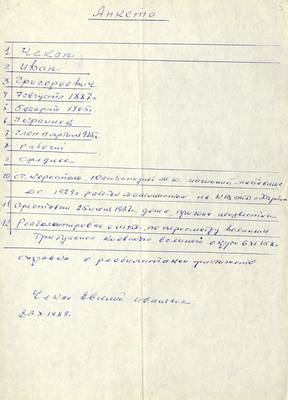 Анкета
1 Чекан
2 Иван
3 Григорьевич
4 7 августа 1887 г.
5
6 Украинец
7 член партии 1925 г.
8 рабочий
9 среднее
10 ст. Коростень, Юго-Западной ж.д.
до 1929 г. работал машинистом на
11 Арестован 25 июля 1937 г. дома, причина неизвестна
12 Реабилитирован по пересмотру военным
Трибуналом Киевского военного округа 6 XI 58 г.
справка о реабилитации прилагается
Чекан Евгений Иванович
23.X.1989.